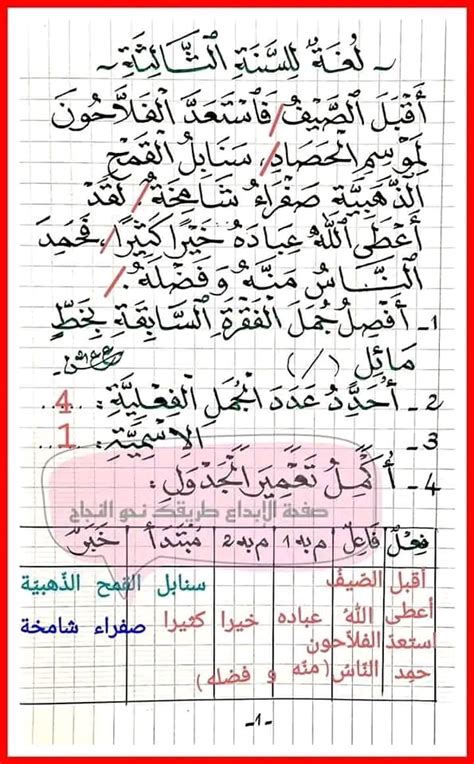 ~ لُغَةٌ لِلسَّنَةِ الثَّالِثَةِ ~
أَقْبَلَ الصَّيْفُ / فَاسْتَعَدَّ الْفَلَّاحُونَ
لِمَوْسِمِ الْحَصَادِ /، سَنَابِلُ الْقَمْحِ
الذَّهَبِيَّةِ صَفْرَاءُ شَامِخَةٌ /. لَقَدْ
أَعْطَى اللَّهُ عِبَادَهُ خَيْرًا كَثِيرًا /، فَحَمِدَ
النَّاسُ مَنَّهُ وَفَضْلَهُ /.
1- أَفْصِلُ جُمَلَ الْفَقْرَةِ السَّابِقَةِ بِخَطٍّ
مَائِلٍ (/)
2- أُحَدِّدُ عَدَدَ الْجُمَلِ الْفِعْلِيَّةِ: ...4...
3- الِاسْمِيَّةِ: ...1...
4- أُكْمِلُ تَعْمِيرَ الْجَدْوَلِ:
صفحة الإبداع طريقك نحو النجاح
فِعْلٌ فَاعِلٌ م به 1 م به 2 مُبْتَدَأٌ خَبَرٌ
أقبل الصّيفُ سنابل القمح الذّهبيّة
أعطى اللهُ عباده خيرا كثيرا صفراء شامخة
استعدّ الفلاّحون
حمِد النّاسُ (منّه و فضله)
-1-